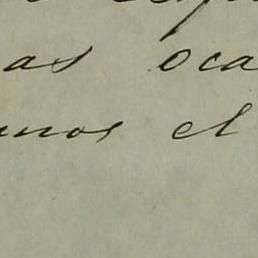 as oca
unos el